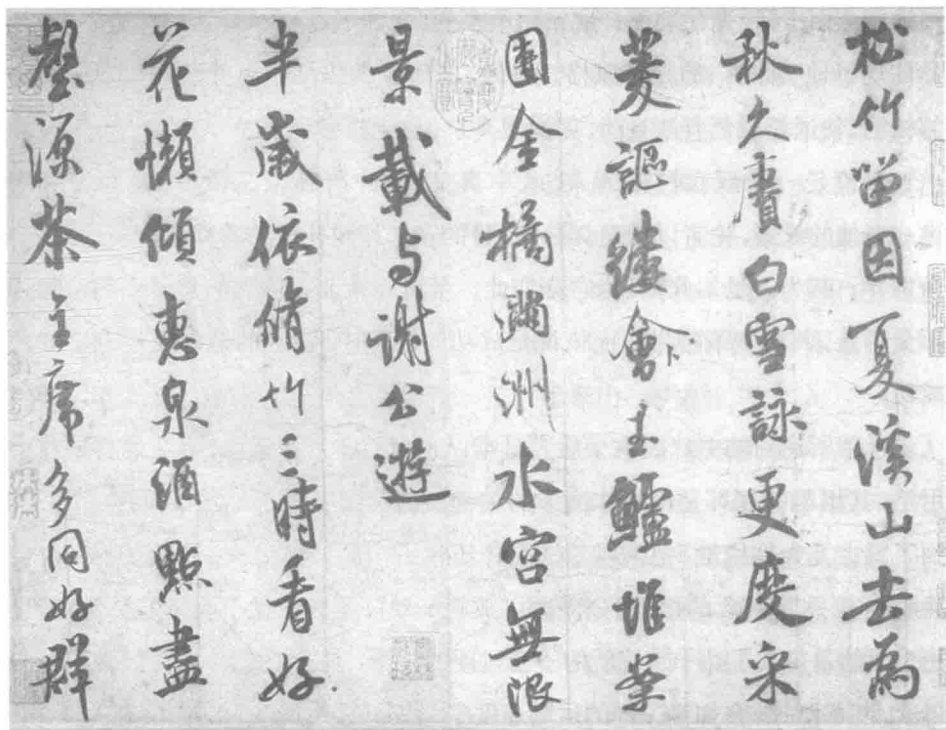 松竹留因夏溪山去為
秋久賡白雪詠更度采
菱謳縷會玉鱸堆案
團金橘滿洲水宮無限
景載与謝公遊
半歲依修竹三時看好
花懶傾惠泉酒點盡
壑源茶主席多同好群